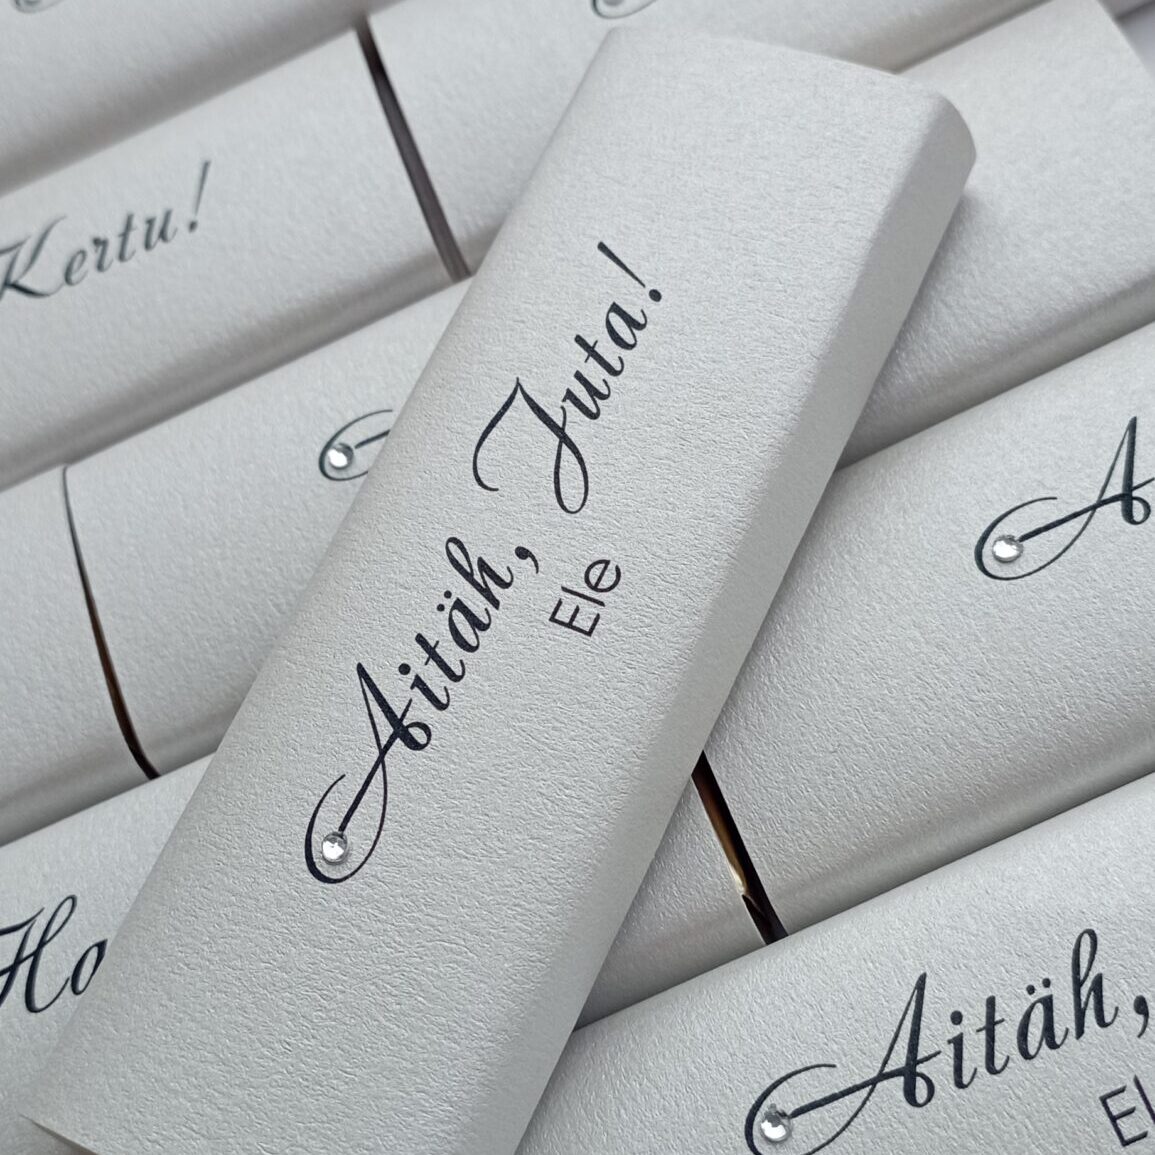 Kertu!
Aitäh, Juta!
Ele
Aitäh,